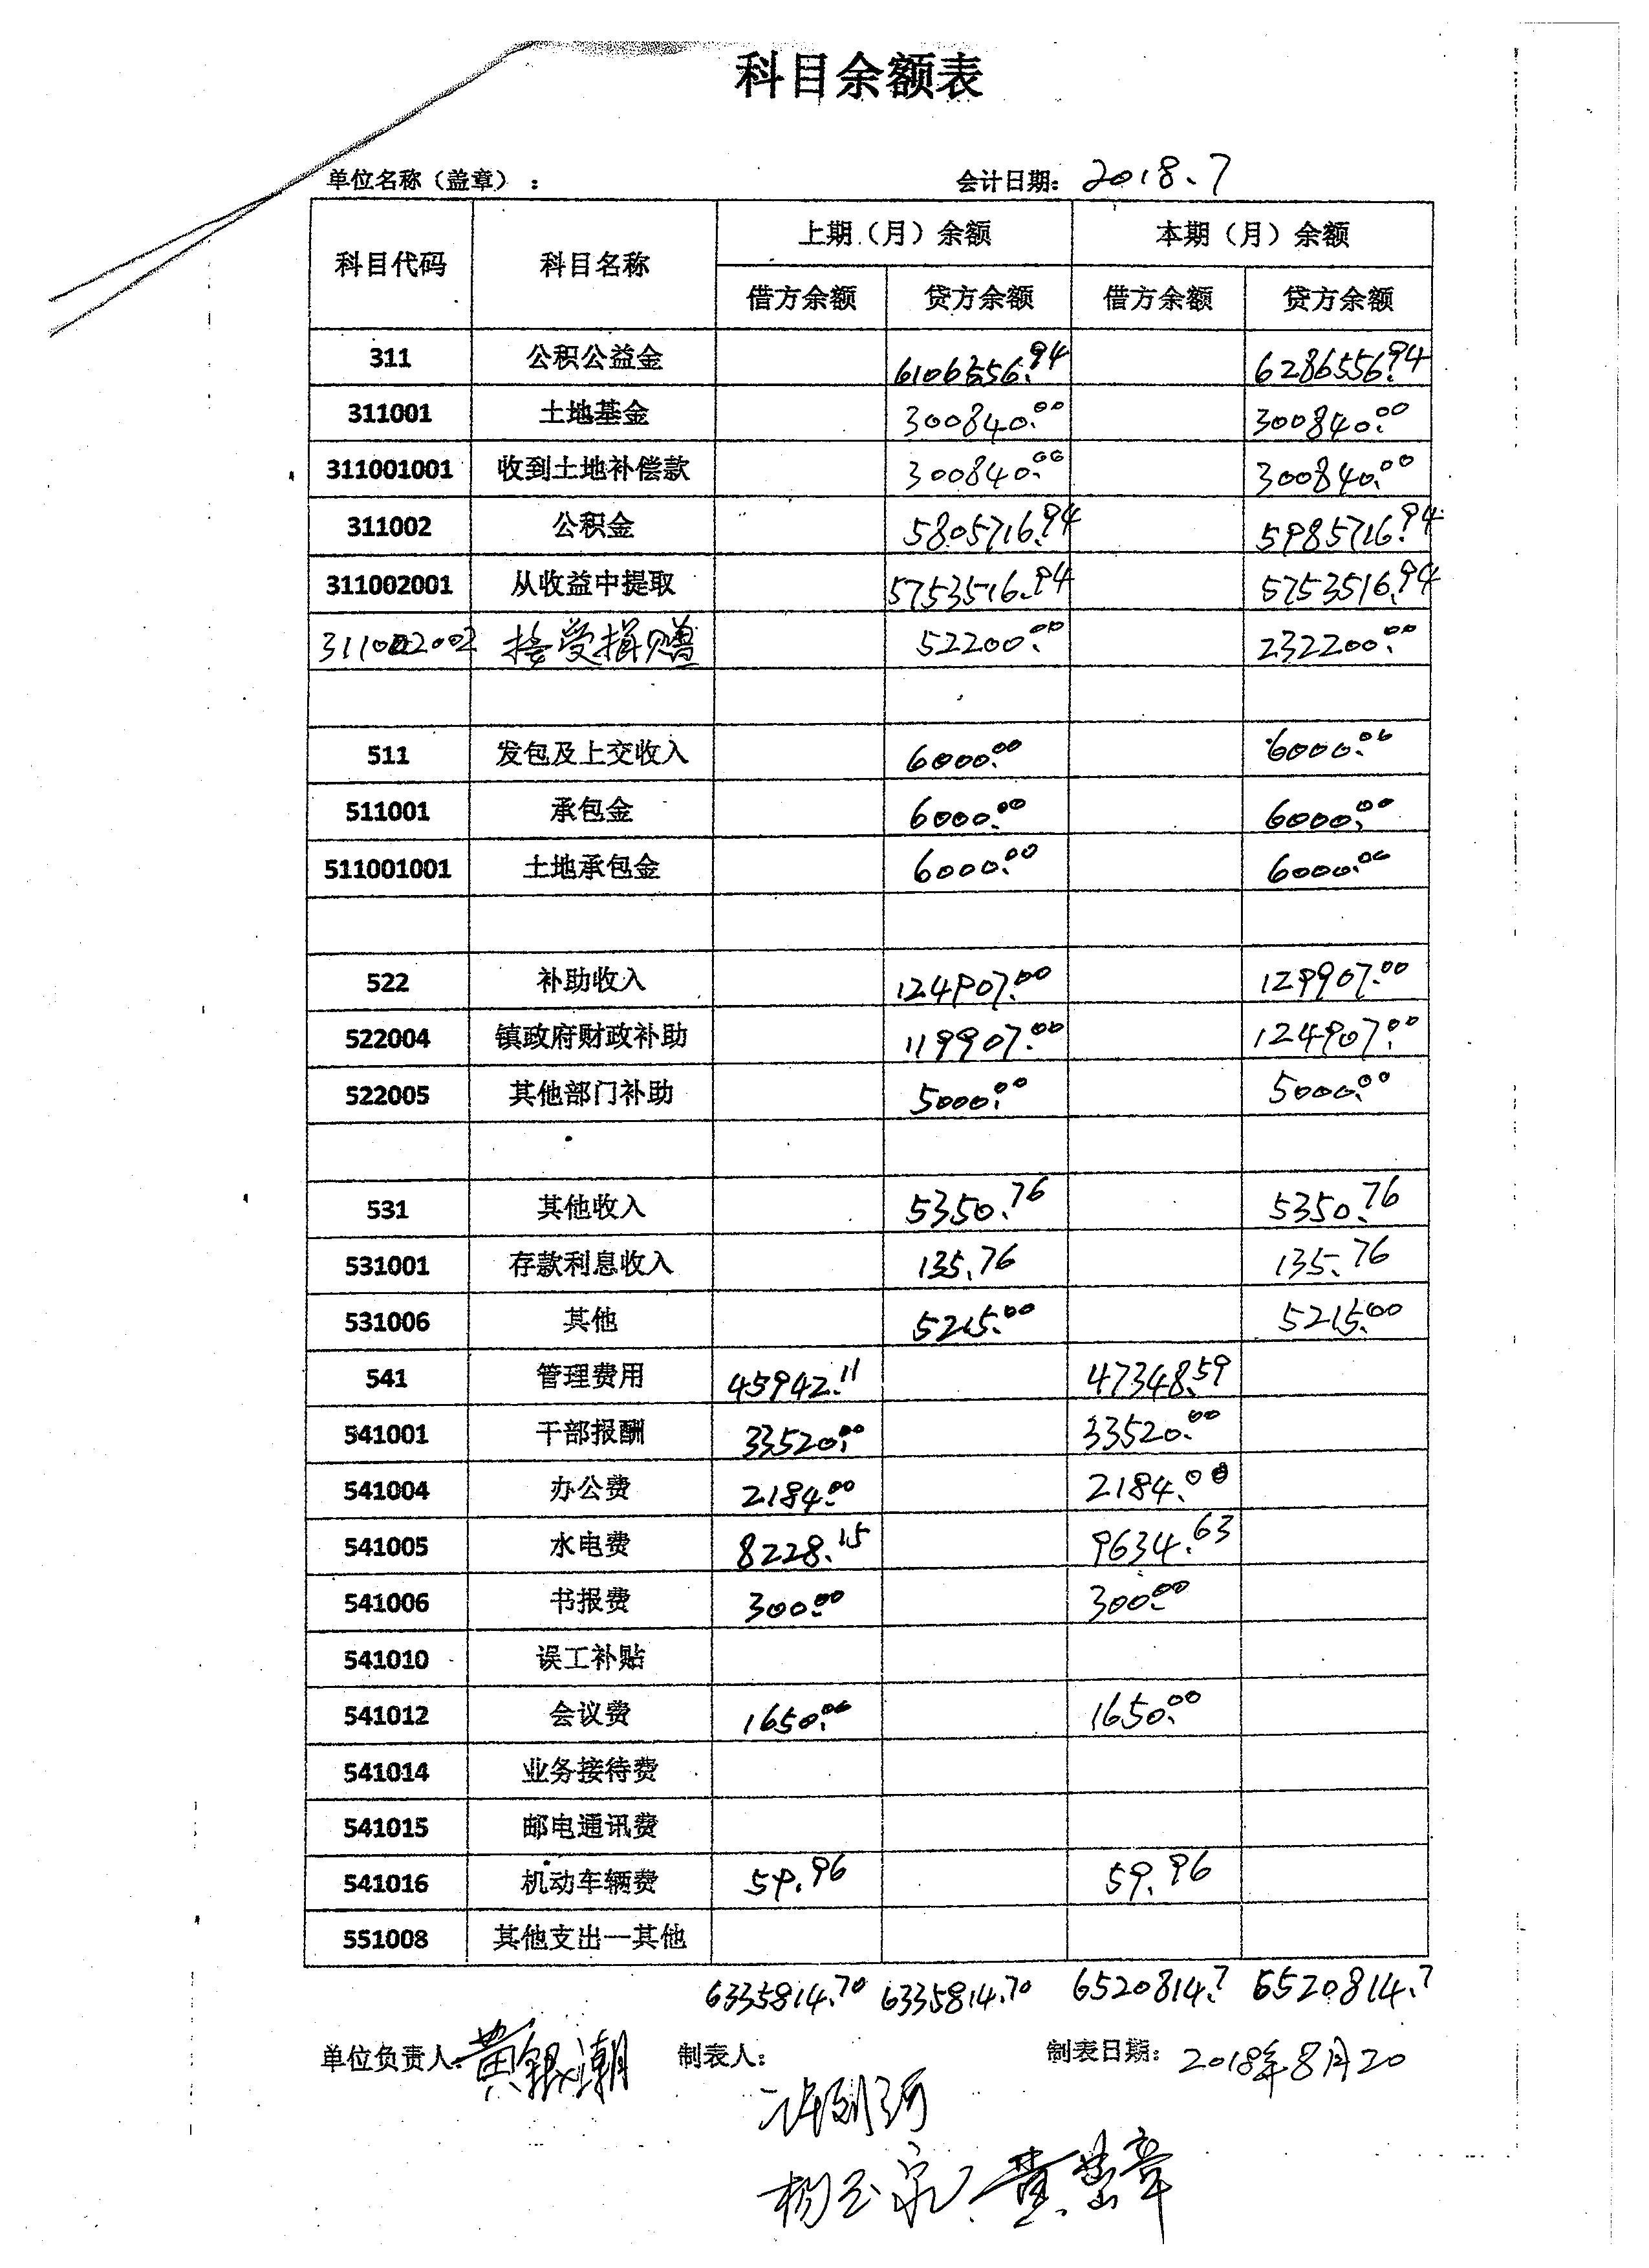 科目余额表
单位名称（盖章）：
会计日期：2018.7
科目代码 科目名称 上期（月）余额 本期（月）余额
借方余额 贷方余额 借方余额 贷方余额
311 公积公益金 6106556.94 6286556.94
311001 土地基金 300840.00 300840.00
311001001 收到土地补偿款 300840.00 300840.00
311002 公积金 5805716.94 5985716.94
311002001 从收益中提取 5753516.94 5753516.94
311002002 接受捐赠 52200.00 232200.00
511 发包及上交收入 6000.00 6000.00
511001 承包金 6000.00 6000.00
511001001 土地承包金 6000.00 6000.00
522 补助收入 124907.00 129907.00
522004 镇政府财政补助 119907.00 124907.00
522005 其他部门补助 5000.00 5000.00
531 其他收入 5350.76 5350.76
531001 存款利息收入 135.76 135.76
531006 其他 5215.00 5215.00
541 管理费用 45942.11 47348.59
541001 干部报酬 33520.00 33520.00
541004 办公费 2184.00 2184.00
541005 水电费 8228.15 9634.63
541006 书报费 300.00 300.00
541010 误工补贴
541012 会议费 1650.00 1650.00
541014 业务接待费
541015 邮电通讯费
541016 机动车辆费 59.96 59.96
551008 其他支出一其他
6335814.70 6335814.70 6520814.7 6520814.7
单位负责人：黄银潮 制表人： 制表日期：2018年8月20